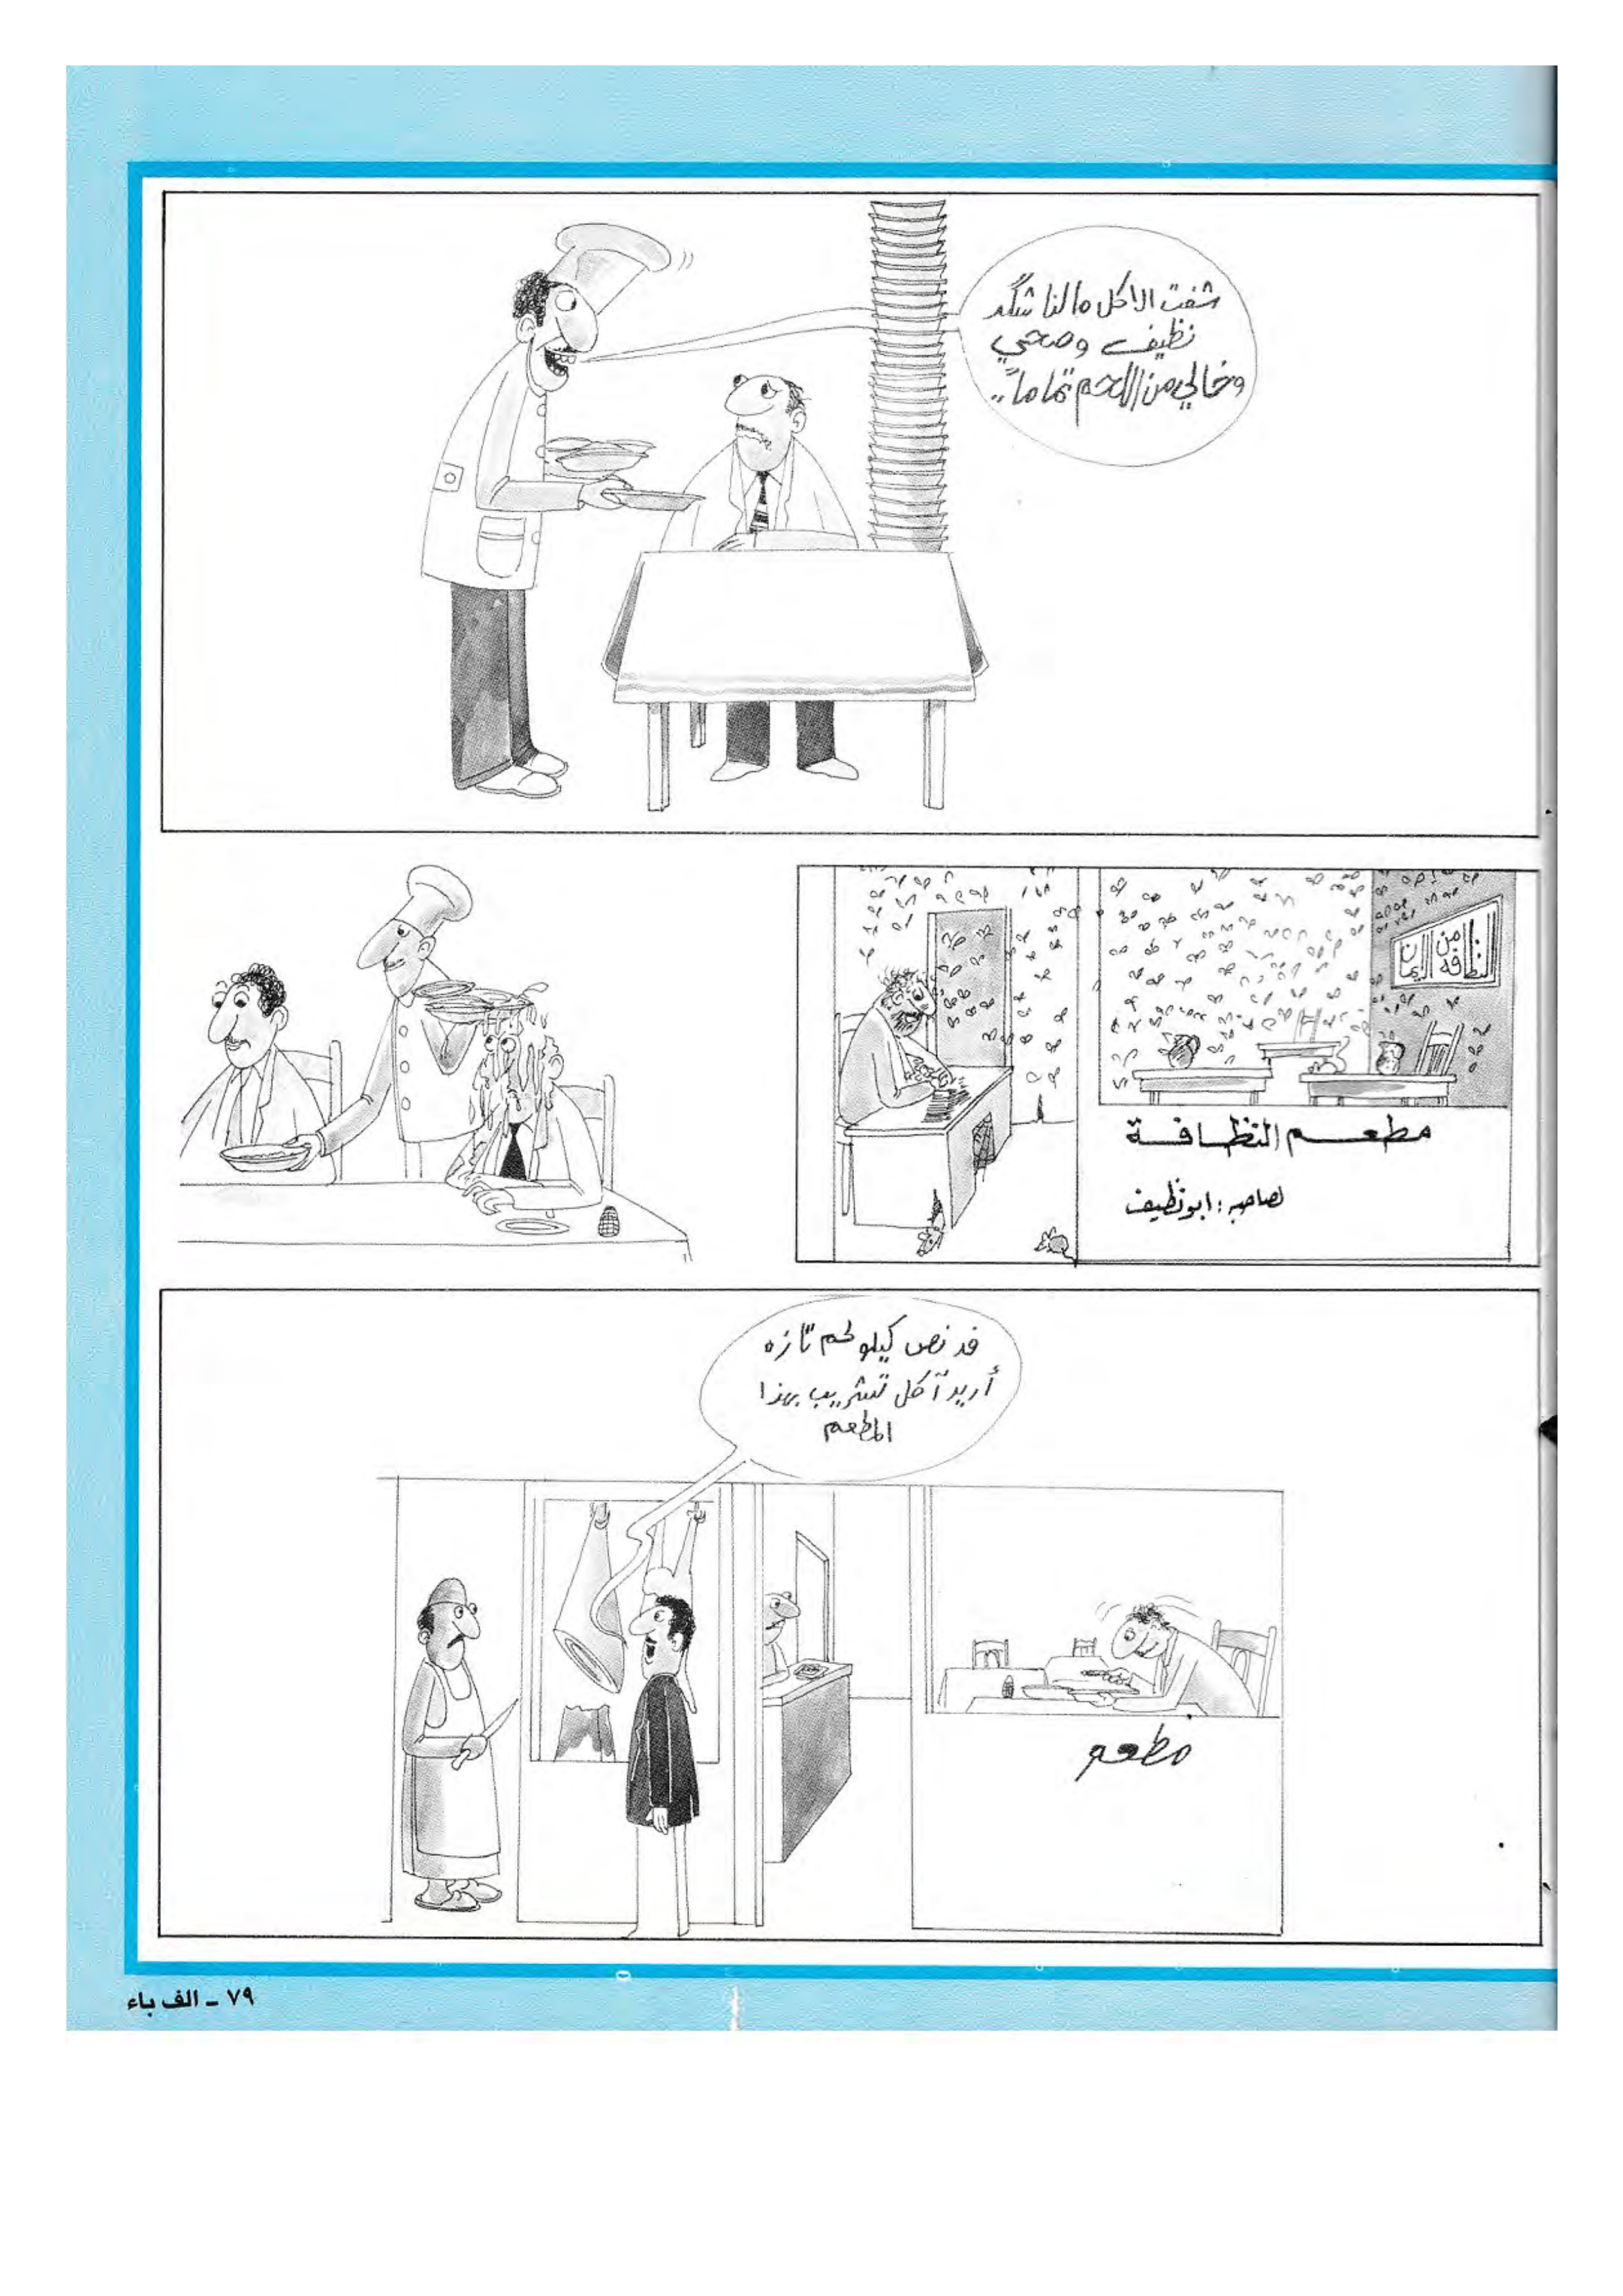 شفت الاكل مالنا شگد
نظيف وصحي
وخالي من اللحم تماماً..
النظافة من الايمان
مطعم النظافة
لصاحبه : ابو نظيف
فد نص كيلو لحم تازه
أريد آكل تشريب بهذا
المطعم
مطعم
٧٩ - الف باء